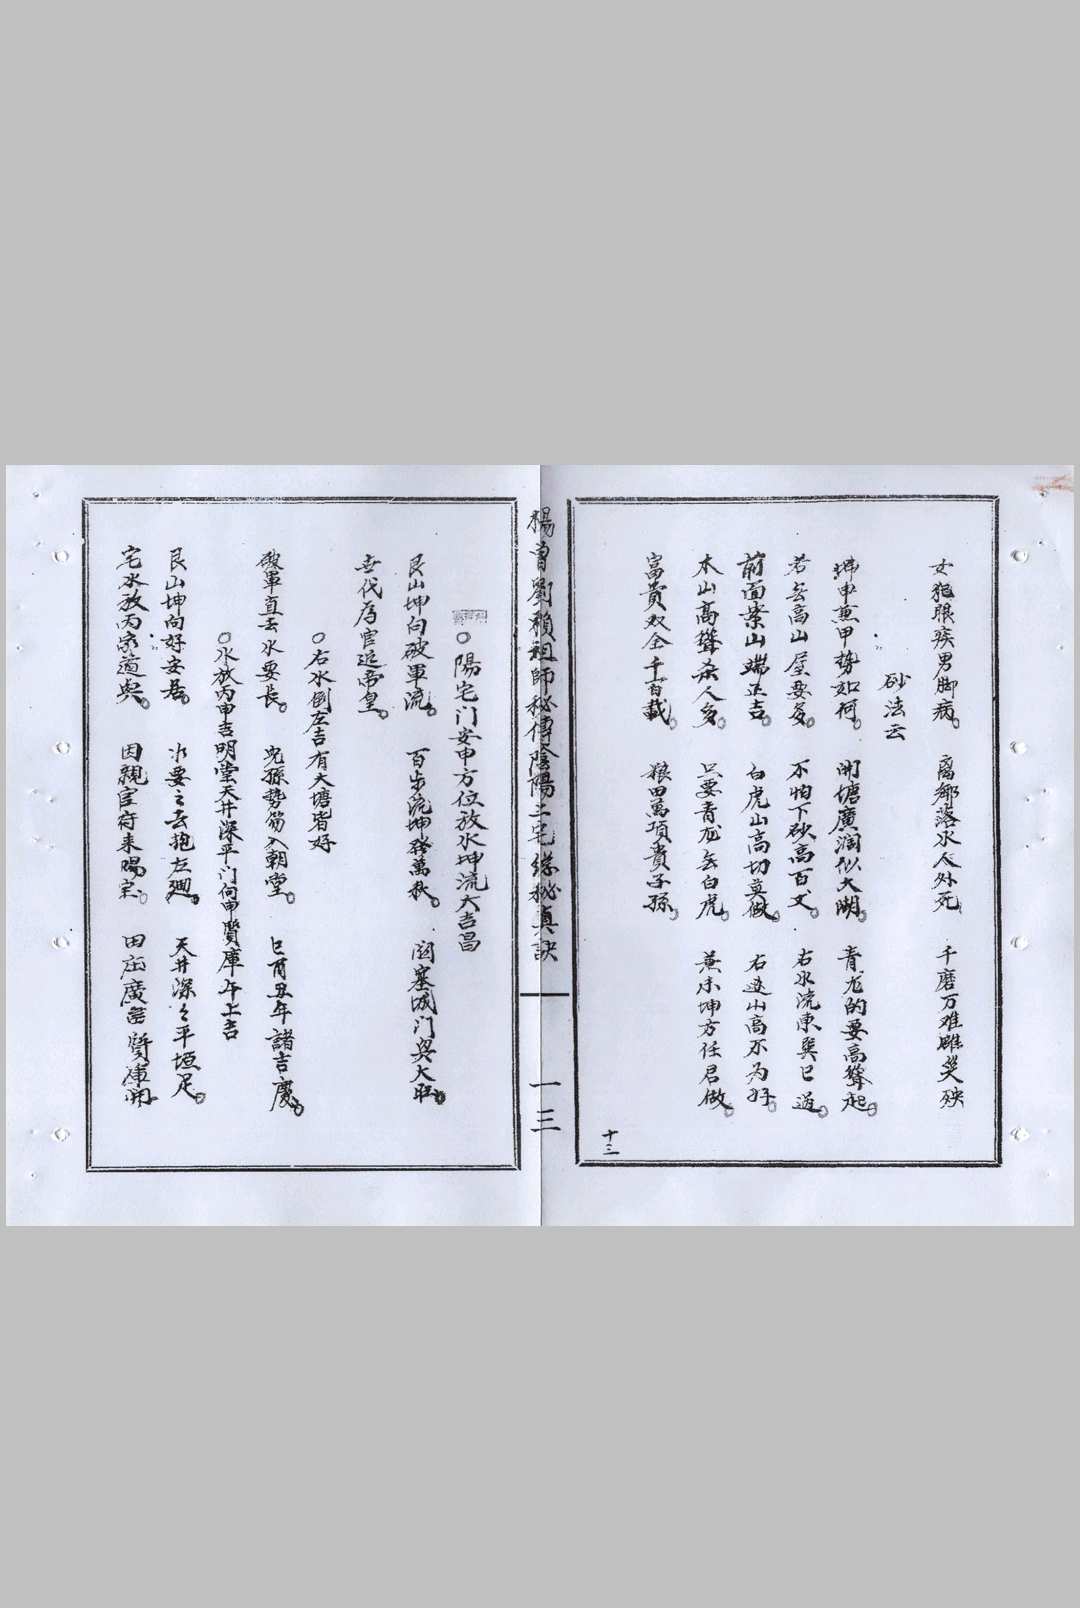 女犯眼疾男脚病。 离鄉落水人外死 千磨万难雖災殃
砂法云
坤申兼甲勢如何。 開塘廣潤似大湖。 青龙的要高聳起。
若無高山屋要多。 不怕下砂高百丈。 右水流東巽巳過。
前面案山端正吉。 白虎山高切莫做。 右邊山高不为好。
本山高聳杀人多。 只要青龙無白虎。 兼未坤方任君做。
富貴双全千百載。 粮田萬項貴子孫。
十三
楊曾劉賴祖師秘傳陰陽二宅 秘真訣
一三
○陽宅门安申方位放水坤流大吉昌
艮山坤向破軍流。 百步流坤發萬秋。 関塞城门與大旺。
世代為官近帝皇。
○右水倒左吉有大塘皆好
破軍直去水要長。 兒孫勢笏入朝堂。 巳酉丑年諸吉慶。
○水放丙申吉明堂天井深平门向申質庫午上吉
艮山坤向好安居。 水要之玄抱左廻。 天井深々平垣足。
宅水放丙家道興。 因親官府来賜宝。 田庄廣置質庫開。